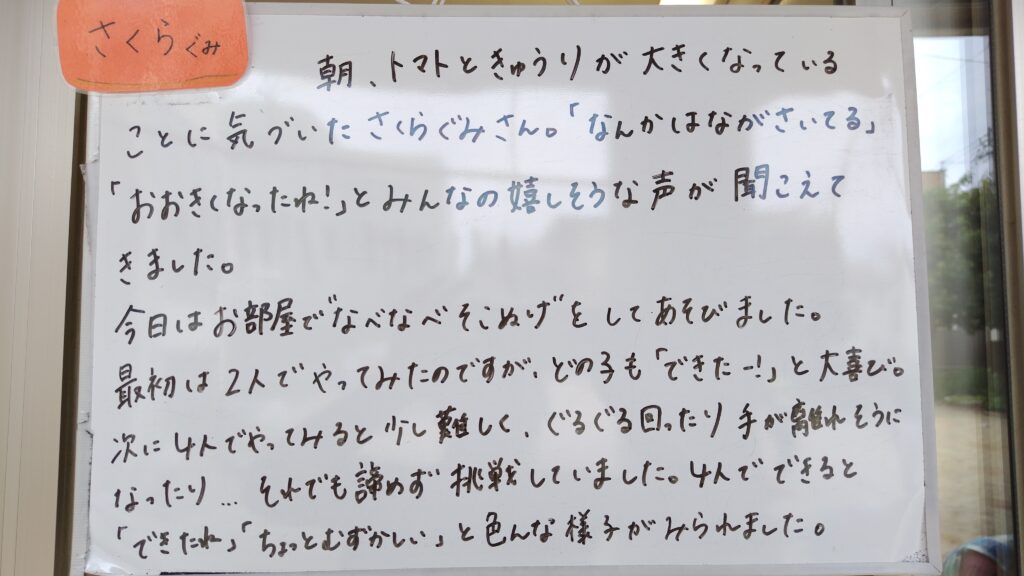 さくらぐみ
朝、トマトときゅうりが大きくなっている
ことに気づいたさくらぐみさん。「なんかはながさいてる」
「おおきくなったね!」とみんなの嬉しそうな声が聞こえて
きました。
今日はお部屋で"なべなべそこぬけ"をしてあそびました。
最初は2人でやってみたのですが、どの子も「できたー!」と大喜び。
次に4人でやってみると少し難しく、ぐるぐる回ったり手が離れそうに
なったり…それでも諦めず挑戦していました。4人でできると
「できたね」「ちょっとむずかしい」と色んな様子がみられました。